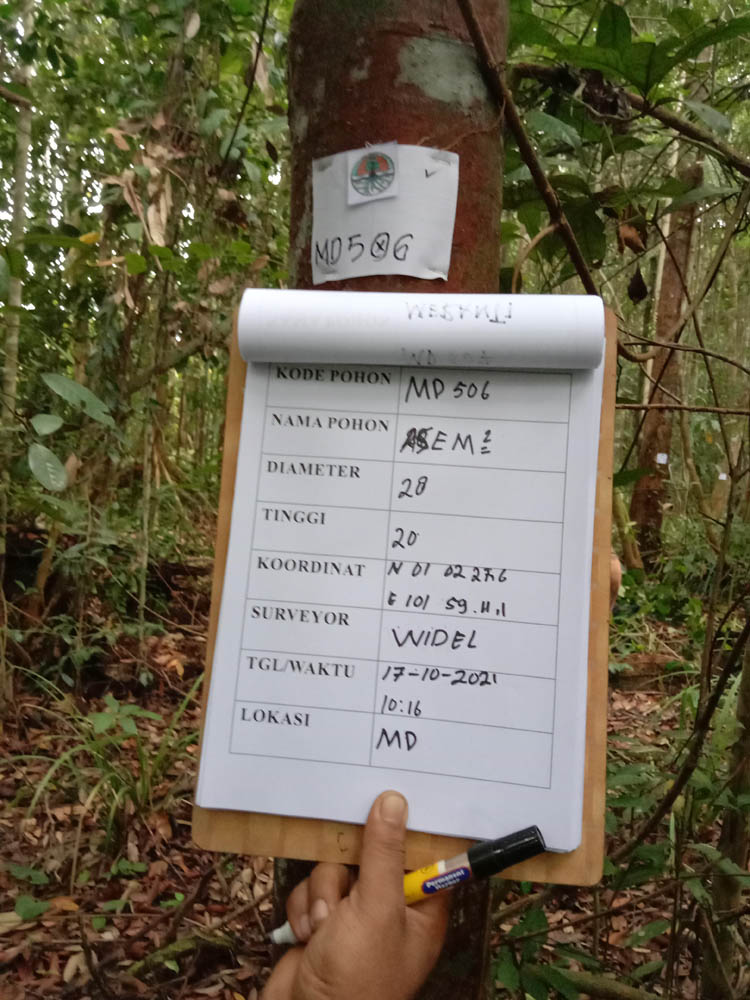 MD506
MERANTI
KODE POHON MD 506
NAMA POHON ASEM²
DIAMETER 28
TINGGI 20
KOORDINAT N 01 02 27.6
E 101 59.11.1
SURVEYOR WIDEL
TGL/WAKTU 17-10-2021
10:16
LOKASI MD
Permanent
Marker